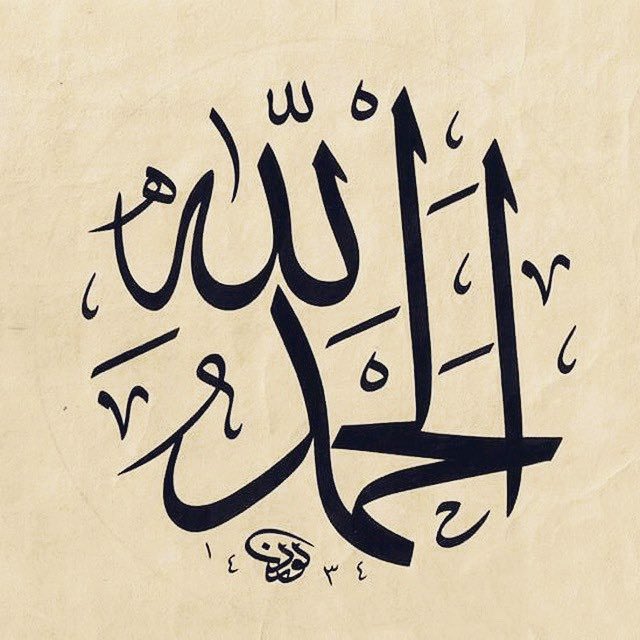 اَلْحَمْدُ لِلّٰهِ
١٤٣٤